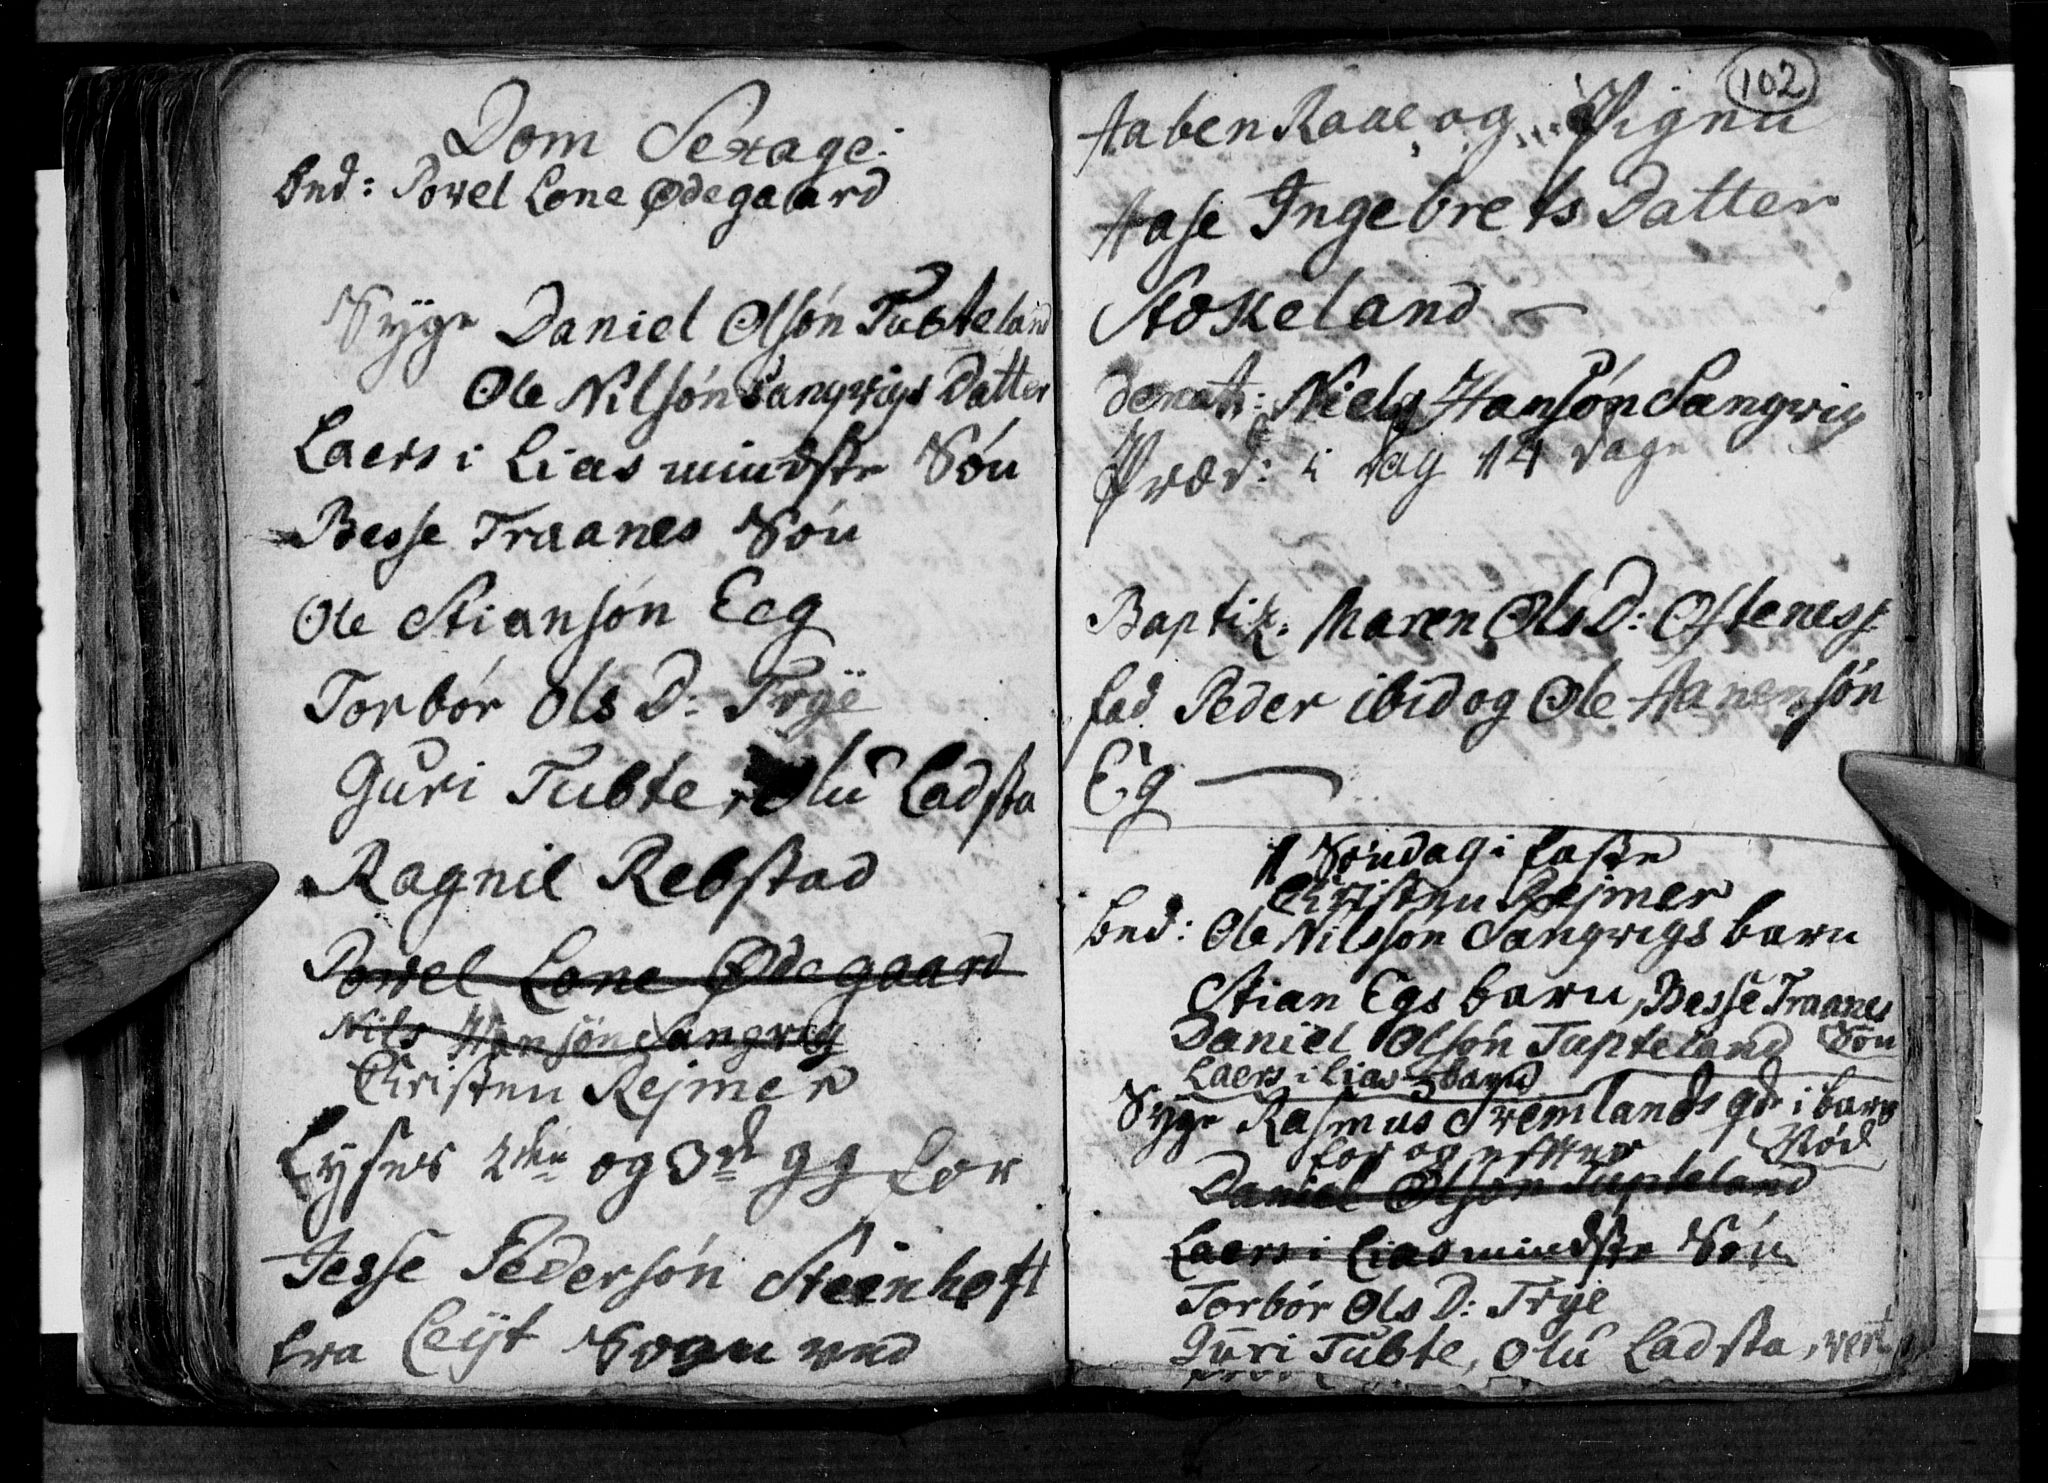 Dom Sexage:
bnd: Povel Lone Ødegaard
Syge Daniel Olsøn Tubteland
Ole Nilsøn Sangvigs Datter
Laers i Lias mindste Søn
Besse Traanes Søn
Ole Stiansøn Eeg
Torbør Ols D: Trye
Guri Tubte, Olu Ladsta
Ragnil Rebstad
Povel Lone Ødegaard
Nils Hansøn Sangvig
Christen Rejmer
Lyses 2den og 3de gg for
Jesse Pedersøn Steenhoft
fra Leyt Sogn ved
102
Aabenraae og Pigen
Aase Ingebrets Datter
Stokeland
denat: Niels Hansøn Sangvig
Præd: i dag 14 dage
Baptiz. Maren Ols D: Ostenes
fad Peder ibid og Ole Aanensøn
Eg
1 Søndag i faste
Christen Rejmer
bnd: Ole Nilssøn Sangvigs barn
Stian Egs barn, Besse Traanes
Daniel Olsøn Tupteland Søn
Laers i Lias barn
Syge Rasmus Svemlands qde i barns
for og efter Nød
Daniel Olsøn Tupteland
Laers i Lias mindste Søn
Torbør Ols D: Trye
Guri Tubte, Olu Ladsta,